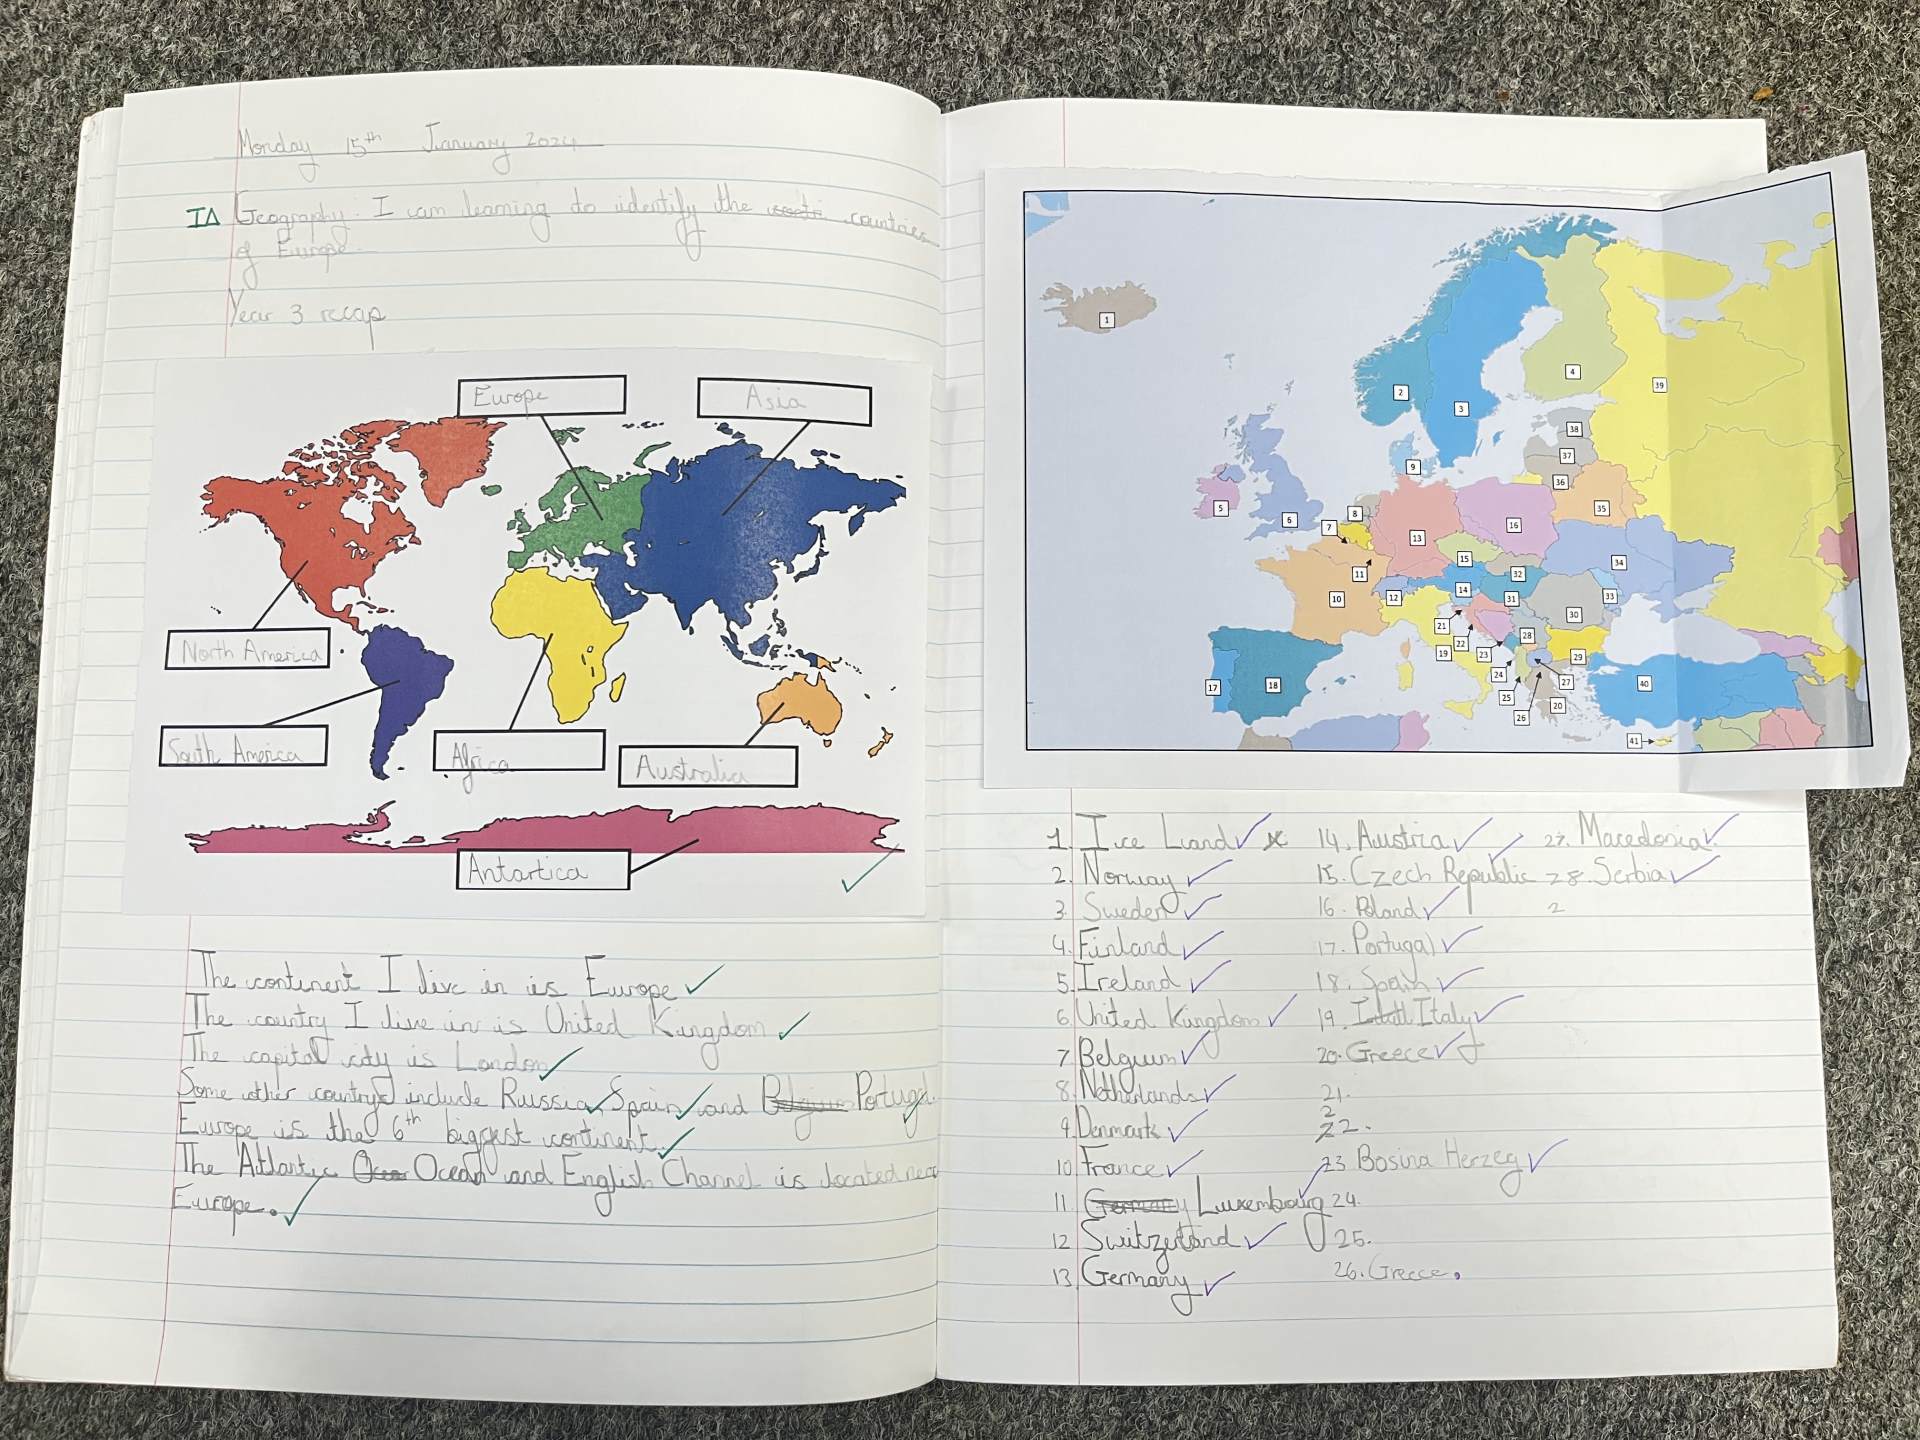 Monday 15th January 2024
IΔ Geography: I am learning to identify the conti countries
of Europe.
Year 3 recap
Europe
Asia
North America
South America
Africa
Australia
Antartica
The continent I live in is Europe
The country I live in is United Kingdom
The capital city is London
Some other countrys include Russia, Spain and Belgium Portugal.
Europe is the 6th biggest continent.
The Atlantic Ocea Ocean and English Channel is located near
Europe.
1
2
3
4
5
6
7
8
9
10
11
12
13
14
15
16
17
18
19
20
21
22
23
24
25
26
27
28
29
30
31
32
33
34
35
36
37
38
39
40
41
1. Ice Land
2. Norway
3. Sweden
4. Finland
5. Ireland
6. United Kingdom
7. Belgium
8. Netherlands
9. Denmark
10. France
11. Germany Luxembourg
12 Switzerland
13. Germany
14. Austria
15. Czech Republic
16. Poland
17. Portugal
18. Spain
19. Italy
20. Greece
21.
22.
23 Bosina Herzeg
24.
25.
26. Grecce.
27. Macedonia
28. Serbia
2